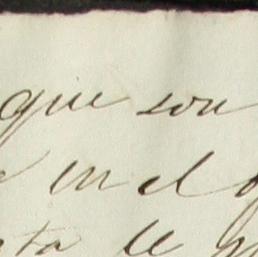 que son
en el
ta le